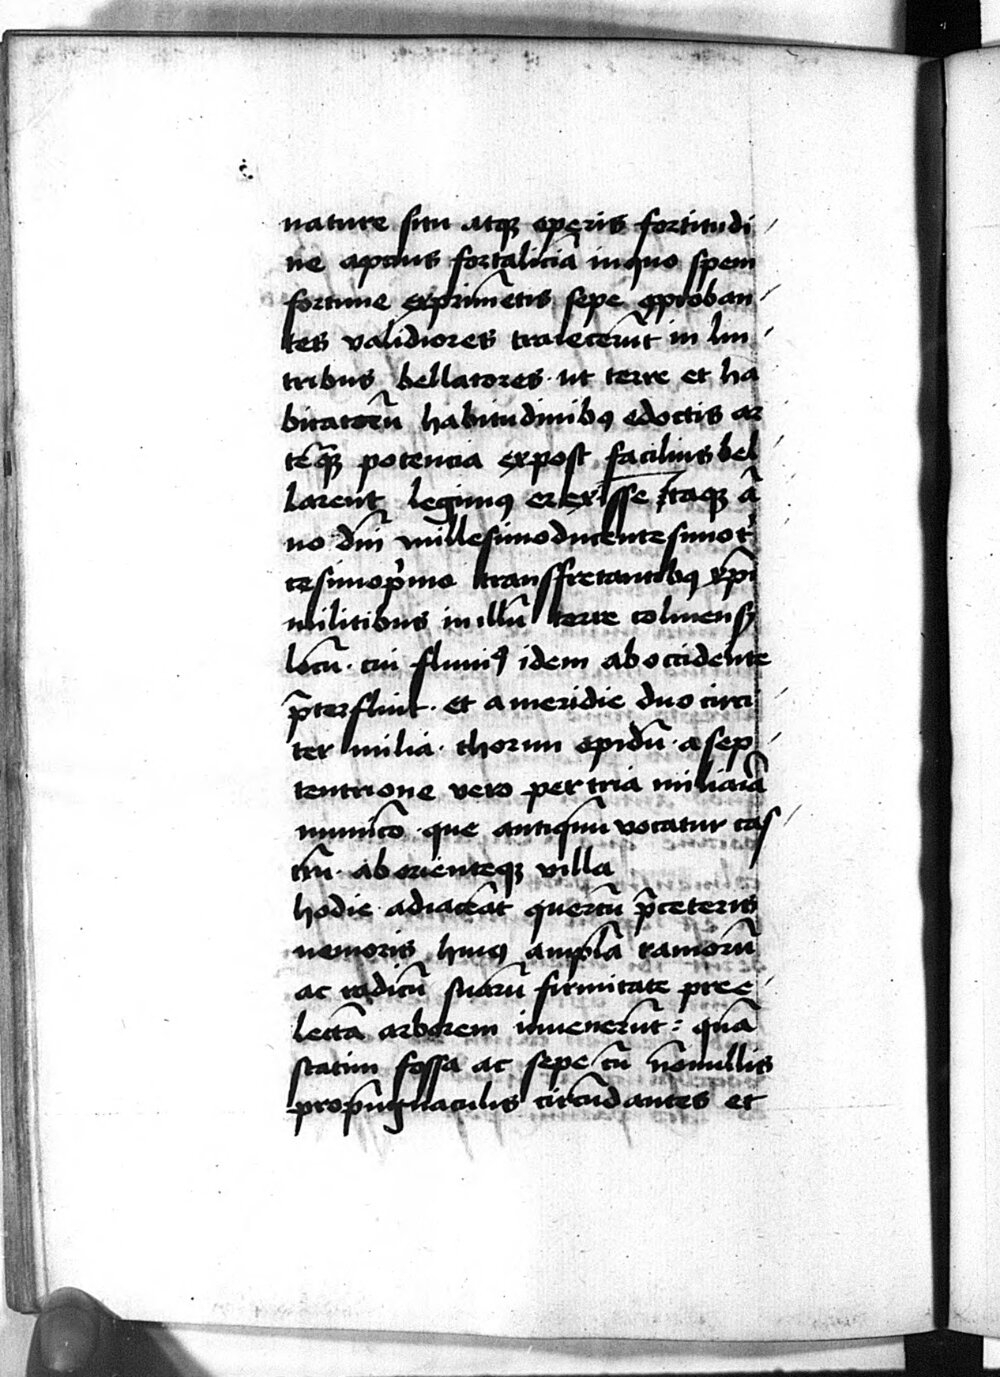 nature situ atqꝫ operis fortitudi
ne aptius fortaliciā in quo spem
fortune exprimētis sepe ꝓproban
tes validiores traiecerūt in lin
tribus bellatores · ut terre et ha
bitatorū habitudinibꝯ edoctis ar
potencia expost facilius bel
larent legimꝯ erexisse Itaqꝫ ā
no dn̄i millesimoducentesimot
cesimop̄mo transfretantibꝯ xp̄i
militibus in illū terre colmensꝫ
locū · cui fluuiꝯ idem ab occidente
p̄terfluit · et a meridie duo circi
ter milia · thorun opidū · a sep
tentrione vero per tria miliaia
que antiquū vocatur cas
trū · ab orienteqꝫ villa
hodie adiaceāt quercū p̄ceteris
nemoris huiꝯ amplā ramorū
ac radicū suarū firmitate pree
lectā arborem inuenerūt : quā
statim fossa ac sepe cū nōnullis
propūgnaculis circūdantes et